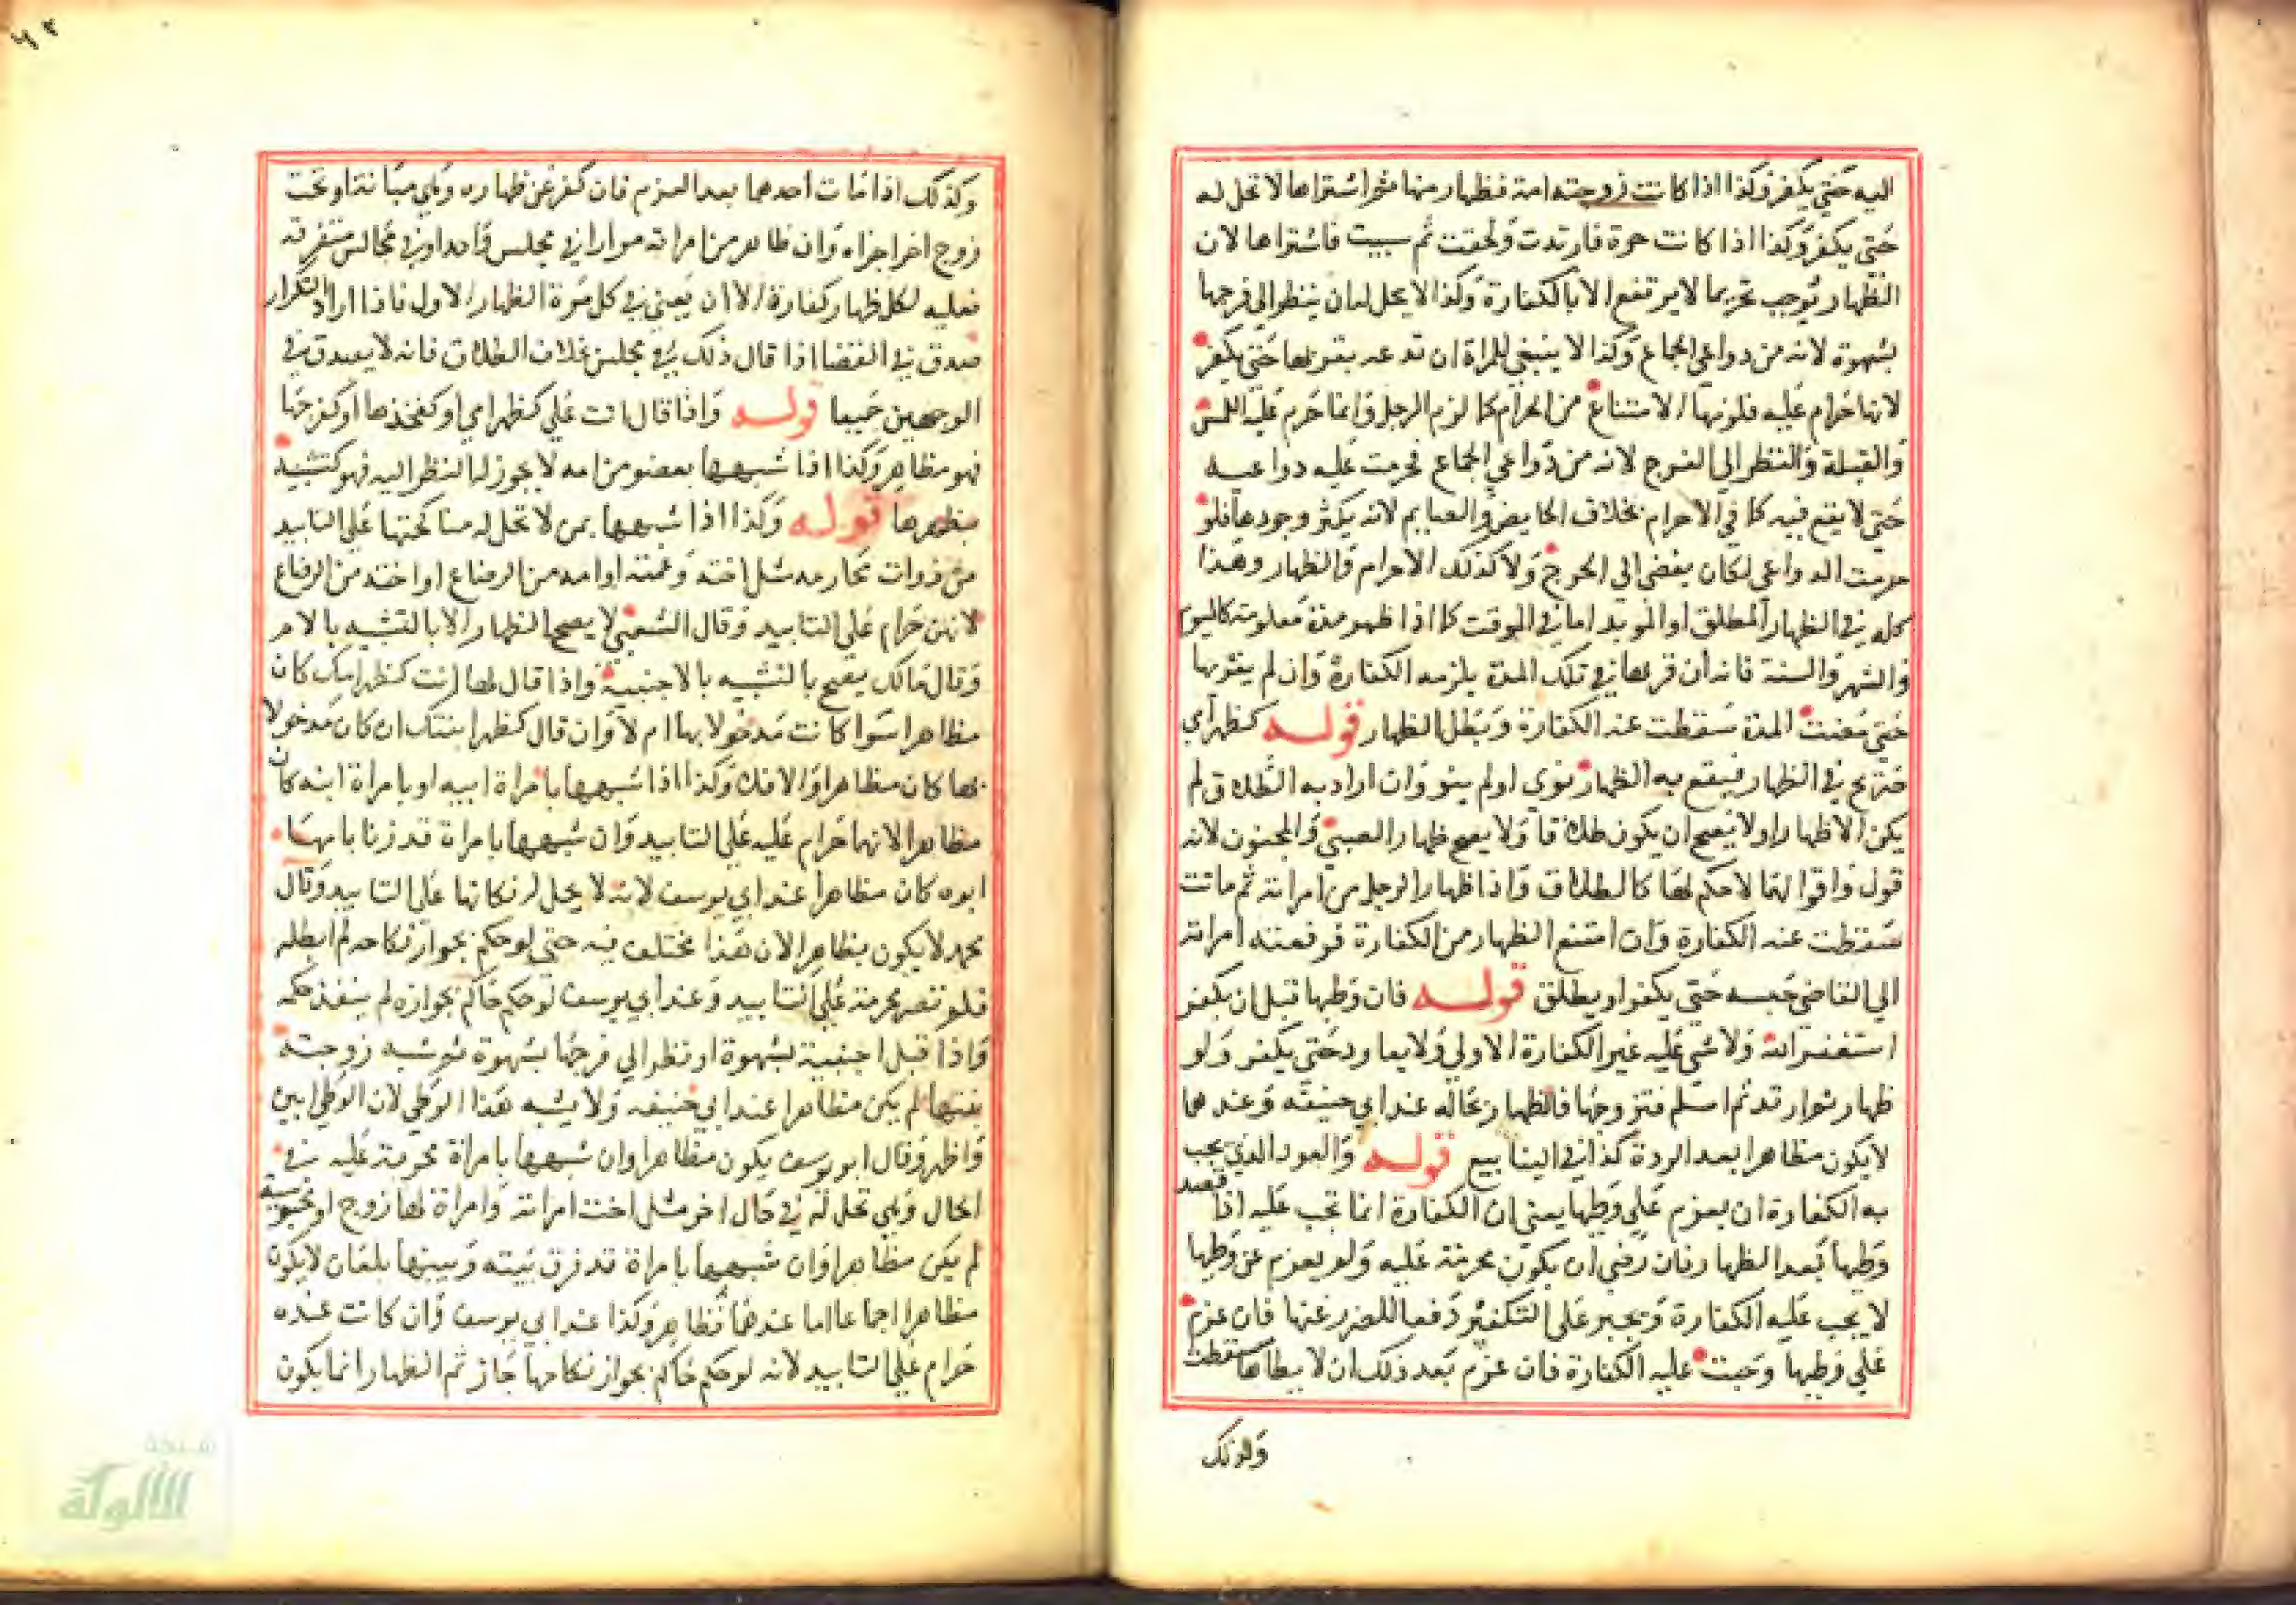 اليه حتي يكفر وكذا اذا كانت زوجته امة فظاهر منها ثم اشتراها لا تحل له
حتي يكفر وكذا اذا كانت حرة فارتدت ولحقت ثم سبيت فاشتراها لان
الظهار يوجب تحريما لا يرتفع الا بالكفارة وكذا لا يحل له ان ينظر الي فرجها
بشهوة لانه من دواعي الجماع وكذا لا ينبغي للمراة ان تدعه يقربها حتي يكفر
لانها حرام عليه فلزمها الامتناع من الحرام كما لزم الرجل وانما حرم عليه اللمس
والقبلة والنظر الي الفرج لانه من دواعي الجماع فحرمت عليه دواعيه
حتي لا يقع فيه كما في الاحرام بخلاف الحايض والصايم لانه يكثر وجودها فلو
حرمت الدواعي لكان يفضي الي الحرج ولا كذلك الاحرام والظهار وهذا
كله في الظهار المطلق او الموبد اما في الموقت كما اذا ظهر مدة معلومة كاليوم
والشهر والسنة فانه ان قربها في تلك المدة يلزمه الكفارة وان لم يقربها
حتي مضت المدة سقطت عنه الكفارة وبطل الظهار قوله كظهر امي
صريح في الظهار فيقع به الظهار نوي او لم ينو وان اراد به الطلاق لم
يكن الا ظهارا ولا يصح ان يكون طلاقا ولا يصح ظهار الصبي والمجنون لانه
قول واقوالهما لا حكم لها كالطلاق واذا ظهار الرجل من امراته ثم ماتت
سقطت عنه الكفارة وان امتنع الظهار من الكفارة فرفعته امراته
الي القاضي حبسه حتي يكفر او يطلق قوله فان وطيها قبل ان يكفر
استغفر الله ولا شي عليه غير الكفارة الاولي ولا يعاود حتي يكفر ولو
ظهار ثم ارتد ثم اسلم فتزوجها فالظهار بحاله عند ابي حنيفة وعندهما
لا يكون مظاهرا بعد الردة كذا في الينابيع قوله والعود الذي يجب
به الكفارة ان يعزم علي وطيها يعني ان الكفارة انما تجب عليه اذا قصد
وطيها بعد الظهار فان رضي ان يكون محرمة عليه ولم يعزم عن وطيها
لا يجب عليه الكفارة ويجبر علي التكفير دفعا للضرر عنها فان عزم
علي وطيها وجبت عليه الكفارة فان عزم بعد ذلك ان لا يطاها سقطت
وكذلك
وكذلك اذا مات احدهما بعد العزم فان كفر عن ظهاره وهي مبانة او تحت
زوج اخر اجزاه وان ظاهر من امراته مرارا في مجلس واحد او في مجالس متفرقة
فعليه لكل ظهار كفارة الا ان يعني في كل مرة الظهار الاول فاذا اراد التكرار
صدق في القضا اذا قال ذلك في مجلس بخلاف الطلاق فانه لا يصدق في
الوجهين جميعا قوله واذا قال انت علي كظهر امي او كفخذها او كفرجها
فهو مظاهر وكذا اذا شبهها بعضو من امه لا يجوز له النظر اليه فهو كتشبيه
بظهرها قوله وكذا اذا شبهها بمن لا تحل له مناكحتها علي التابيد
من ذوات محارمه مثل اخته وعمته او امه من الرضاع او اخته من الرضاع
لانهن حرام علي التابيد وقال الشعبي لا يصح الظهار الا بالتشبه بالام
وقال مالك يصح بالتشبيه بالاجنبية واذا قال لها انت كظهر امك كان
مظاهرا سوا كانت مدخولا بها ام لا وان قال كظهر ابنتك ان كان مدخولا
بها كان مظاهرا والا فلا وكذا اذا شبهها بامراة ابيه او بامراة ابنه كان
مظاهرا لانها حرام عليه علي التابيد وان شبهها بامراة قد زنا بامها
ابوه كان مظاهرا عند ابي يوسف لانه لا يحل له نكاحها علي التابيد وقال
محمد لا يكون مظاهرا لان هذا مختلف فيه حتي لو حكم بجواز نكاحه لم ابطله
فلم تصر محرمة علي التابيد وعند ابي يوسف لو حكم حاكم بجوازه لم ينفذ حكمه
واذا قبل اجنبية بشهوة او نظر الي فرجها بشهوة ثم شبه زوجته
بابنتها لم يكن مظاهرا عند ابي حنيفه ولا يشبه هذا الوطي لان الوطي ابين
واظهر وقال ابو يوسف يكون مظاهرا وان شبهها بامراة محرمة عليه في
الحال وهي تحل له في حال اخر مثل اخت امراته وامراة لها زوج او مجوسية
لم يكن مظاهرا وان شبهها بامراة قد فرق بينه وبينها بلعان لا يكون
مظاهرا اجماعا اما عندهما فظاهر وكذا عند ابي يوسف وان كانت عنده
حرام علي التابيد لانه لو حكم حاكم بجواز نكاحها جاز ثم الظهار انما يكون
شبكة
الألوكة